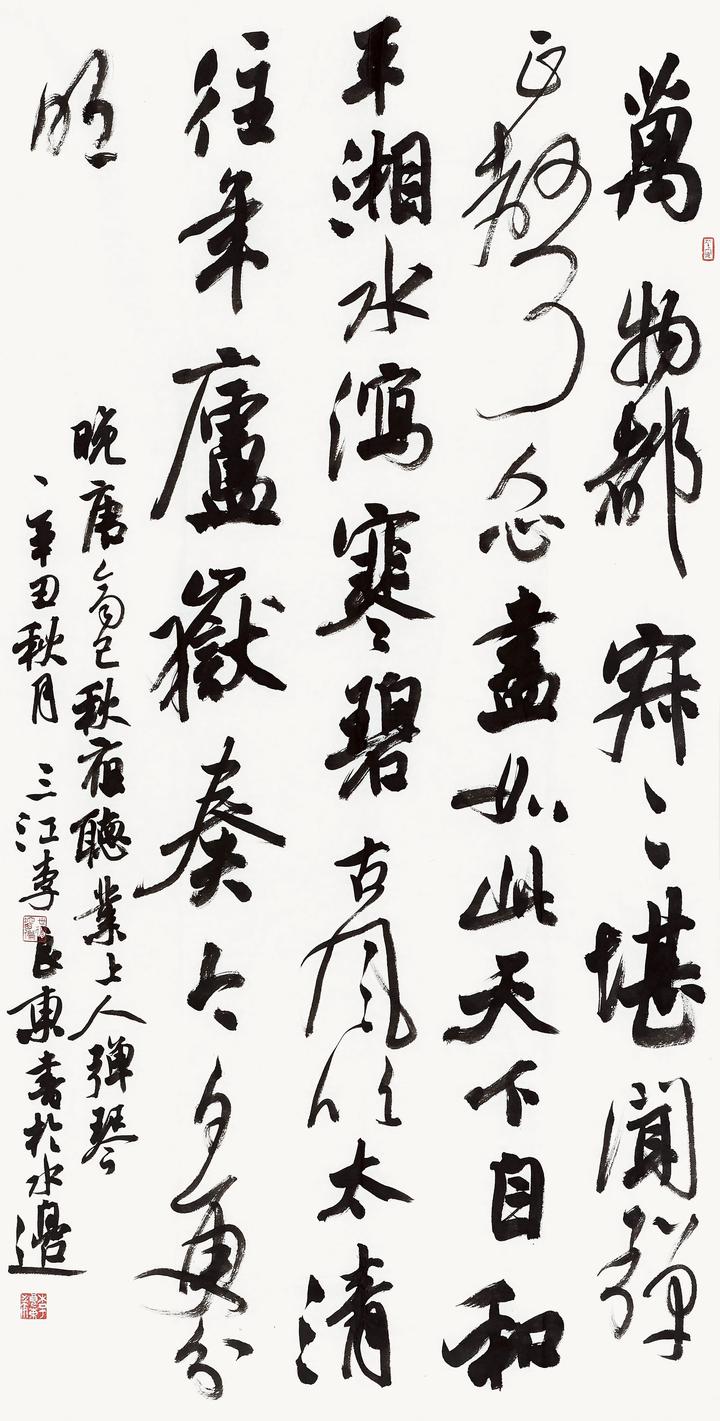 萬物都寂〻堪聞彈
正聲人心盡如此天下自和
平湘水瀉寒碧古風吹太清
往年廬嶽奏今夕更分
明
晚唐齊己秋夜聽業上人彈琴
辛丑秋月三江李良東書於水邊